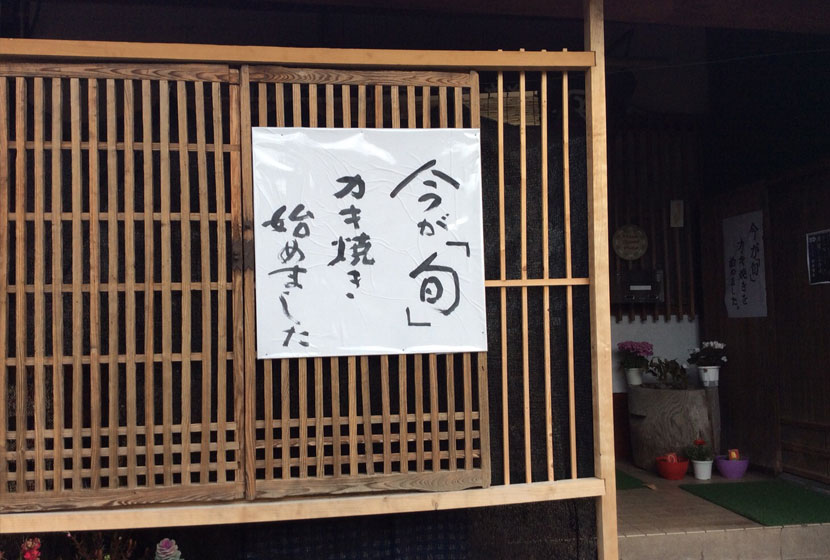 今が「旬」
カキ焼き
始めました
今が「旬」
カキ焼きを
始めました。